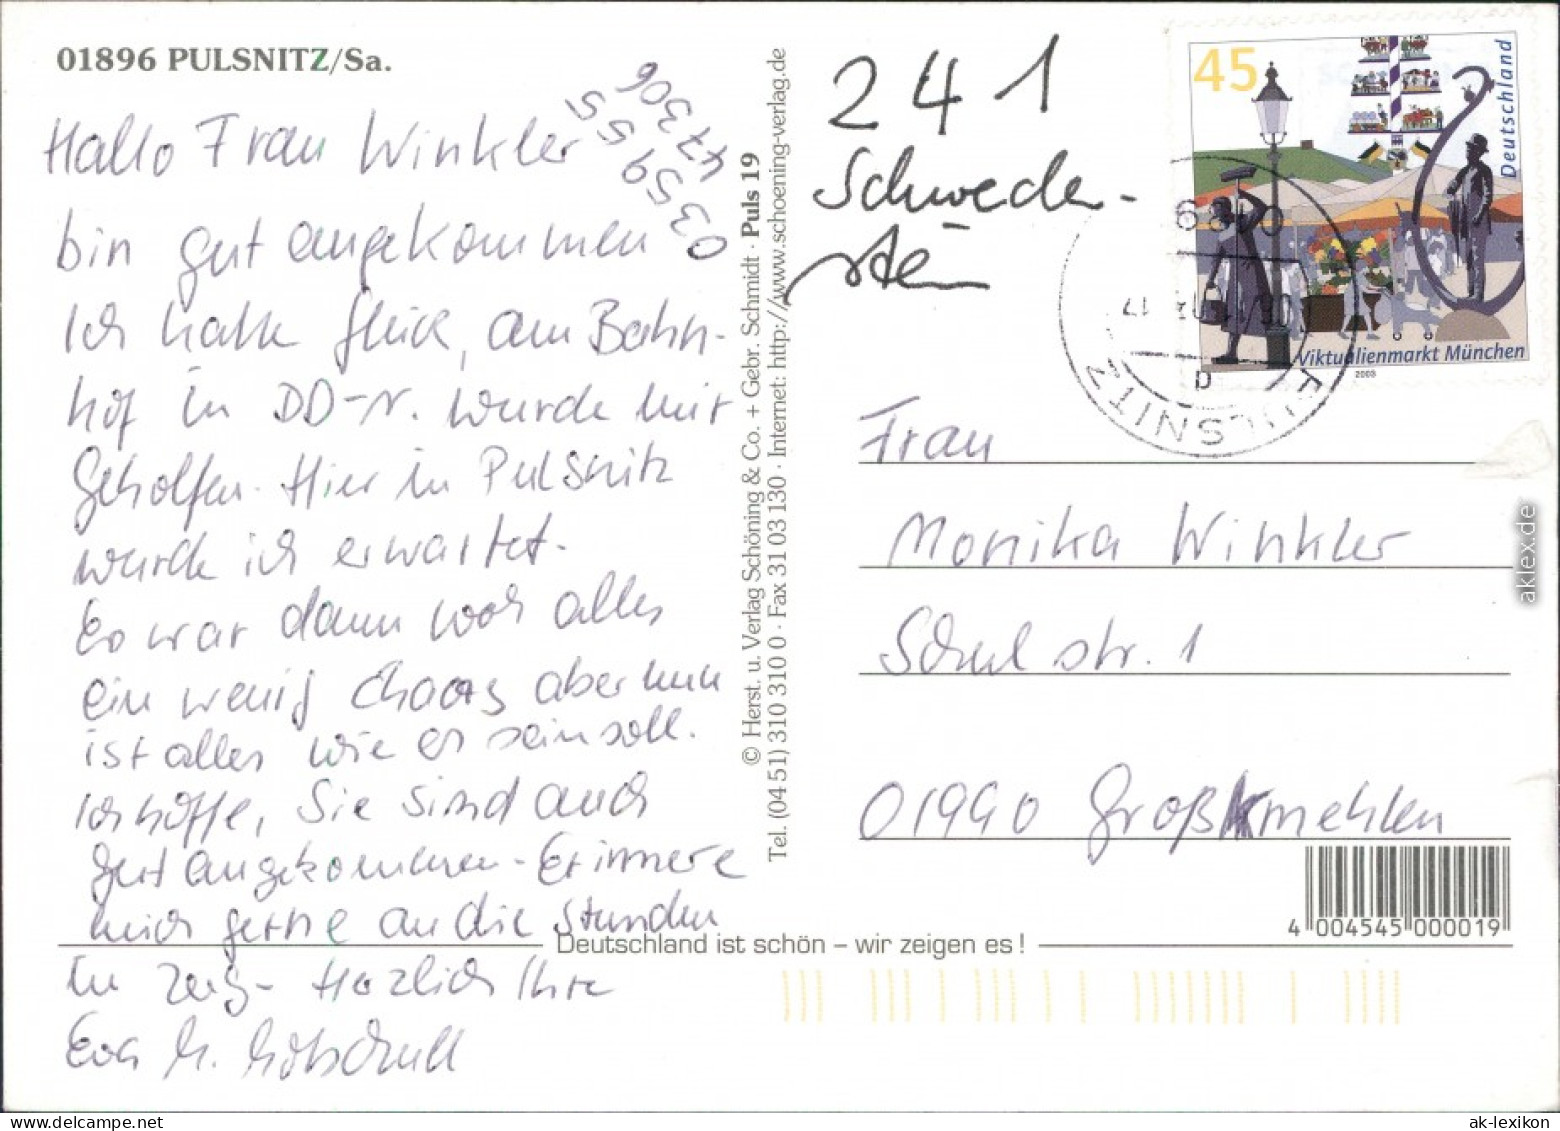 01896 PULSNITZ/Sa.
Hallo Frau Winkler
bin gut angekommen
Ich hatte Glück, am Bahn-
hof in DD-N. wurde mir
Geholfen. Hier in Pulsnitz
wurde ich erwartet.
Es war dann noch alles
ein wenig Chaos aber nun
ist alles wie es sein soll.
Ich hoffe, Sie sind auch
gut angekommen. Erinnere
mich gerne an die Stunden
im Zug. Herzlich Ihre
Eva M.
03 59 55
47 306
© Herst. u. Verlag Schöning & Co. + Gebr. Schmidt · Puls 19
Tel. (04 51) 310 310 0 · Fax 31 03 130 · Internet: http://www.schoening-verlag.de
241
Schwede-
stein
45
Deutschland
Viktualienmarkt München
2003
PULSNITZ
Frau
Monika Winkler
Schulstr. 1
01990 Großkmehlen
4 004545 000019
Deutschland ist schön – wir zeigen es!
aklex.de
ak-lexikon